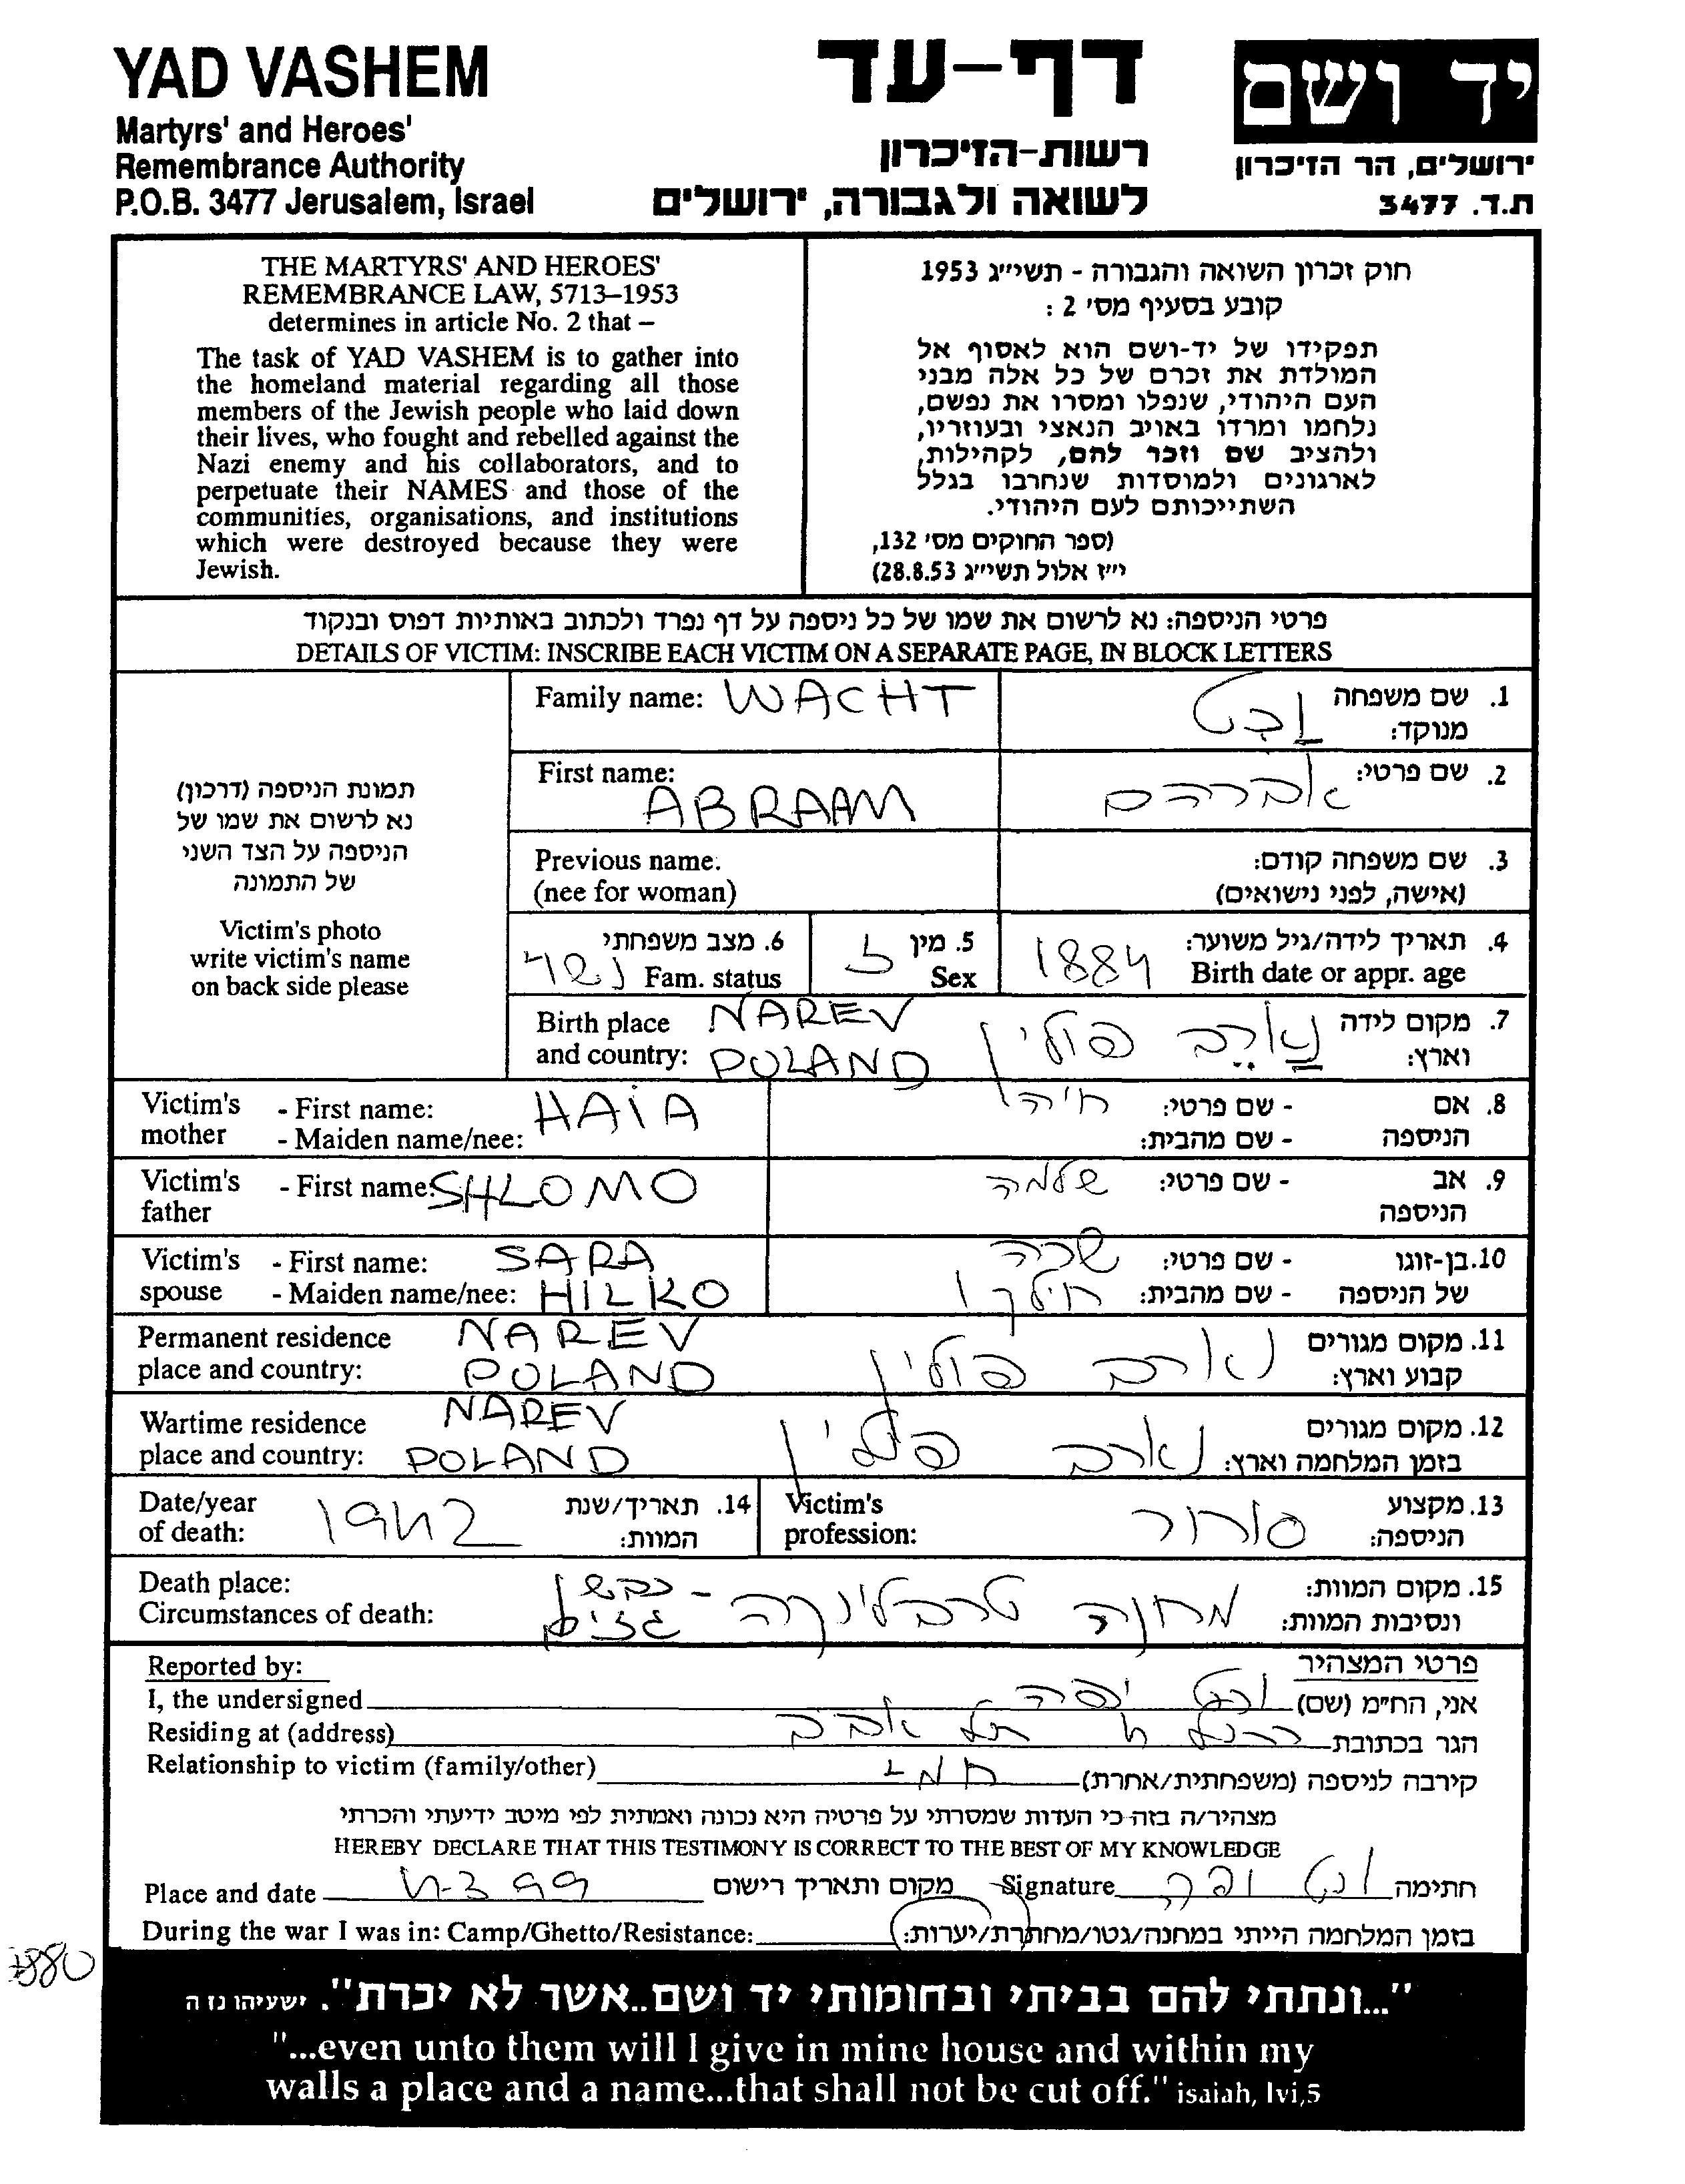 YAD VASHEM
Martyrs' and Heroes'
Remembrance Authority
P.O.B. 3477 Jerusalem, Israel
דף-עד
רשות-הזיכרון
לשואה ולגבורה, ירושלים
יד ושם
ירושלים, הר הזיכרון
ת.ד. 3477
THE MARTYRS' AND HEROES'
REMEMBRANCE LAW, 5713–1953
determines in article No. 2 that –
The task of YAD VASHEM is to gather into
the homeland material regarding all those
members of the Jewish people who laid down
their lives, who fought and rebelled against the
Nazi enemy and his collaborators, and to
perpetuate their NAMES and those of the
communities, organisations, and institutions
which were destroyed because they were
Jewish.
חוק זכרון השואה והגבורה - תשי״ג 1953
קובע בסעיף מס׳ 2 :
תפקידו של יד-ושם הוא לאסוף אל
המולדת את זכרם של כל אלה מבני
העם היהודי, שנפלו ומסרו את נפשם,
נלחמו ומרדו באויב הנאצי ובעוזריו,
ולהציב שם וזכר להם, לקהילות,
לארגונים ולמוסדות שנחרבו בגלל
השתייכותם לעם היהודי.
(ספר החוקים מס׳ 132,
י״ז אלול תשי״ג 28.8.53)
פרטי הניספה: נא לרשום את שמו של כל ניספה על דף נפרד ולכתוב באותיות דפוס ובנקוד
DETAILS OF VICTIM: INSCRIBE EACH VICTIM ON A SEPARATE PAGE, IN BLOCK LETTERS
תמונת הניספה (דרכון)
נא לרשום את שמו של
הניספה על הצד השני
של התמונה
Victim's photo
write victim's name
on back side please
Family name: WACHT
1. שם משפחה
מנוקד: וכט
First name:
ABRAAM
2. שם פרטי: אברהם
Previous name.
(nee for woman)
3. שם משפחה קודם:
(אישה, לפני נישואים)
6. מצב משפחתי
Fam. status נשוי
5. מין ז
Sex
4. תאריך לידה/גיל משוער:
Birth date or appr. age 1884
Birth place NAREV
and country: POLAND
7. מקום לידה
וארץ: נארב פולין
Victim's - First name: HAIA
mother - Maiden name/nee:
8. אם - שם פרטי: חיה
הניספה - שם מהבית:
Victim's - First name: SHLOMO
father
9. אב - שם פרטי: שלמה
הניספה
Victim's - First name: SARA
spouse - Maiden name/nee: HILKO
10. בן-זוגו - שם פרטי: שרה
של הניספה - שם מהבית: חילקו
Permanent residence NAREV
place and country: POLAND
11. מקום מגורים
קבוע וארץ: נארב פולין
Wartime residence NAREV
place and country: POLAND
12. מקום מגורים
בזמן המלחמה וארץ: נארב פולין
Date/year
of death: 1942
14. תאריך/שנת
המוות:
Victim's
profession:
13. מקצוע
הניספה: סוחר
Death place:
Circumstances of death:
15. מקום המוות:
ונסיבות המוות: מחנה טרבלינקה - כבשן
גזים
Reported by:
פרטי המצהיר
I, the undersigned
אני, הח״מ (שם) וכט יפה
Residing at (address)
הגר בכתובת תל אביב
Relationship to victim (family/other)
קירבה לניספה (משפחתית/אחרת)
מצהיר/ה בזה כי העדות שמסרתי על פרטיה היא נכונה ואמתית לפי מיטב ידיעתי והכרתי
HEREBY DECLARE THAT THIS TESTIMONY IS CORRECT TO THE BEST OF MY KNOWLEDGE
Place and date 4-3 99 מקום ותאריך רישום Signature וכט יפה חתימה
During the war I was in: Camp/Ghetto/Resistance: בזמן המלחמה הייתי במחנה/גטו/מחתרת/יערות:
"...ונתתי להם בביתי ובחומותי יד ושם..אשר לא יכרת". ישעיהו נז ה
"...even unto them will I give in mine house and within my
walls a place and a name...that shall not be cut off." isaiah, lvi,5